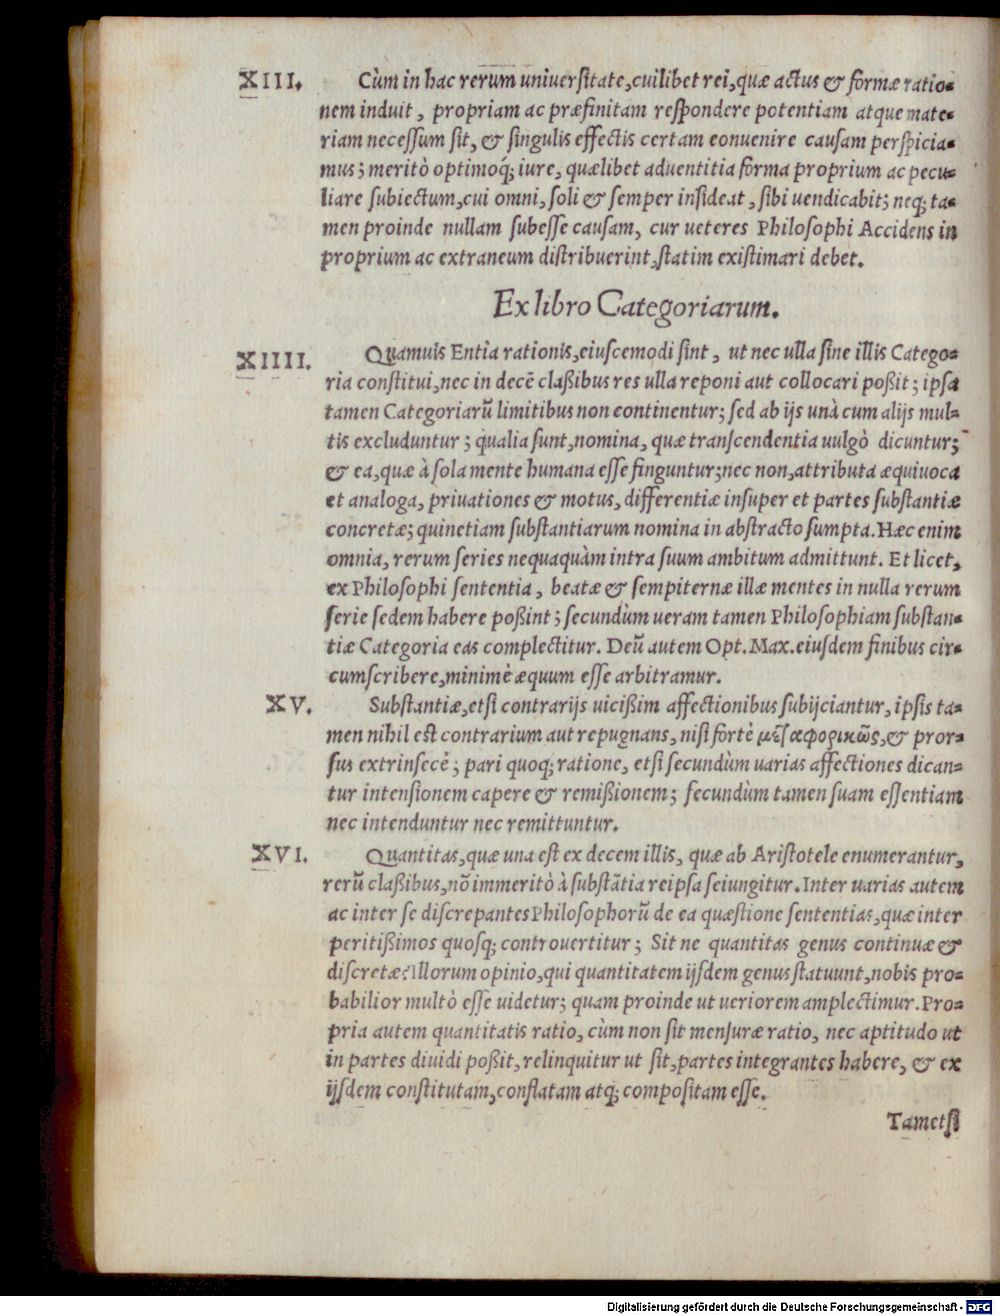 XIII. Cùm in hac rerum uniuersitate,cuilibet rei,quæ actus & formæ ratio-
nem induit, propriam ac præfinitam respondere potentiam atque mate-
riam necessum sit, & singulis effectis certam eonuenire causam perspicia-
mus; meritò optimoq́; iure, quælibet aduentitia forma proprium ac pecu-
liare subiectum,cui omni, soli & semper insideat, sibi uendicabit; neq; ta-
men proinde nullam subesse causam, cur ueteres Philosophi Accidens in
proprium ac extraneum distribuerint,statim existimari debet.
Ex libro Categoriarum.
XIIII. Quamuis Entia rationis,eiuscemodi sint, ut nec ulla sine illis Catego-
ria constitui,nec in decē claßibus res ulla reponi aut collocari poßit; ipsa
tamen Categoriarū limitibus non continentur; sed ab ijs unà cum alijs mul-
tis excluduntur; qualia sunt,nomina, quæ transcendentia uulgò dicuntur;
& ea,quæ à sola mente humana esse finguntur;nec non,attributa æquiuoca
et analoga, priuationes & motus, differentiæ insuper et partes substantiæ
concretæ; quinetiam substantiarum nomina in abstracto sumpta. Hæc enim
omnia, rerum series nequaquàm intra suum ambitum admittunt. Et licet,
ex Philosophi sententia, beatæ & sempiternæ illæ mentes in nulla rerum
serie sedem habere poßint; secundùm ueram tamen Philosophiam substan-
tiæ Categoria eas complectitur. Deū autem Opt. Max. eiusdem finibus cir-
cumscribere,minimè æquum esse arbitramur.
XV. Substantiæ,etsi contrarijs uicißim affectionibus subijciantur, ipsis ta-
men nihil est contrarium aut repugnans, nisi fortè μεταφορικῶς,& pror-
sus extrinsecè; pari quoq; ratione, etsi secundùm uarias affectiones dican-
tur intensionem capere & remißionem; secundùm tamen suam essentiam
nec intenduntur nec remittuntur.
XVI. Quantitas,quæ una est ex decem illis, quæ ab Aristotele enumerantur,
rerū claßibus,nō immeritò à substātia reipsa seiungitur. Inter uarias autem
ac inter se discrepantes Philosophorū de ea quæstione sententias,quæ inter
peritißimos quosq; controuertitur; Sit ne quantitas genus continuæ &
discretæ? Illorum opinio,qui quantitatem ijsdem genus statuunt,nobis pro-
babilior multò esse uidetur; quam proinde ut ueriorem amplectimur. Pro-
pria autem quantitatis ratio, cùm non sit mensuræ ratio, nec aptitudo ut
in partes diuidi poßit,relinquitur ut sit,partes integrantes habere, & ex
ijsdem constitutam,conflatam atq; compositam esse.
Tametsi
Digitalisierung gefördert durch die Deutsche Forschungsgemeinschaft - DFG